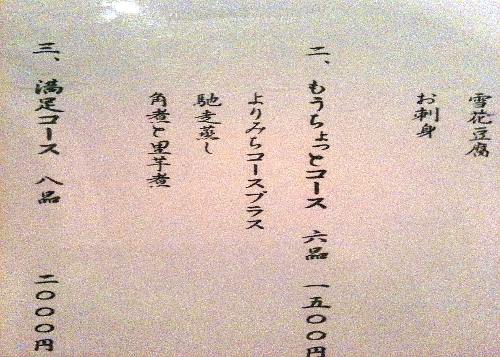 雪花豆腐
お刺身
二、もうちょっとコース 六品 一五〇〇円
よりみちコースプラス
馳走蒸し
角煮と里芋煮
三、満足コース 八品 二〇〇〇円